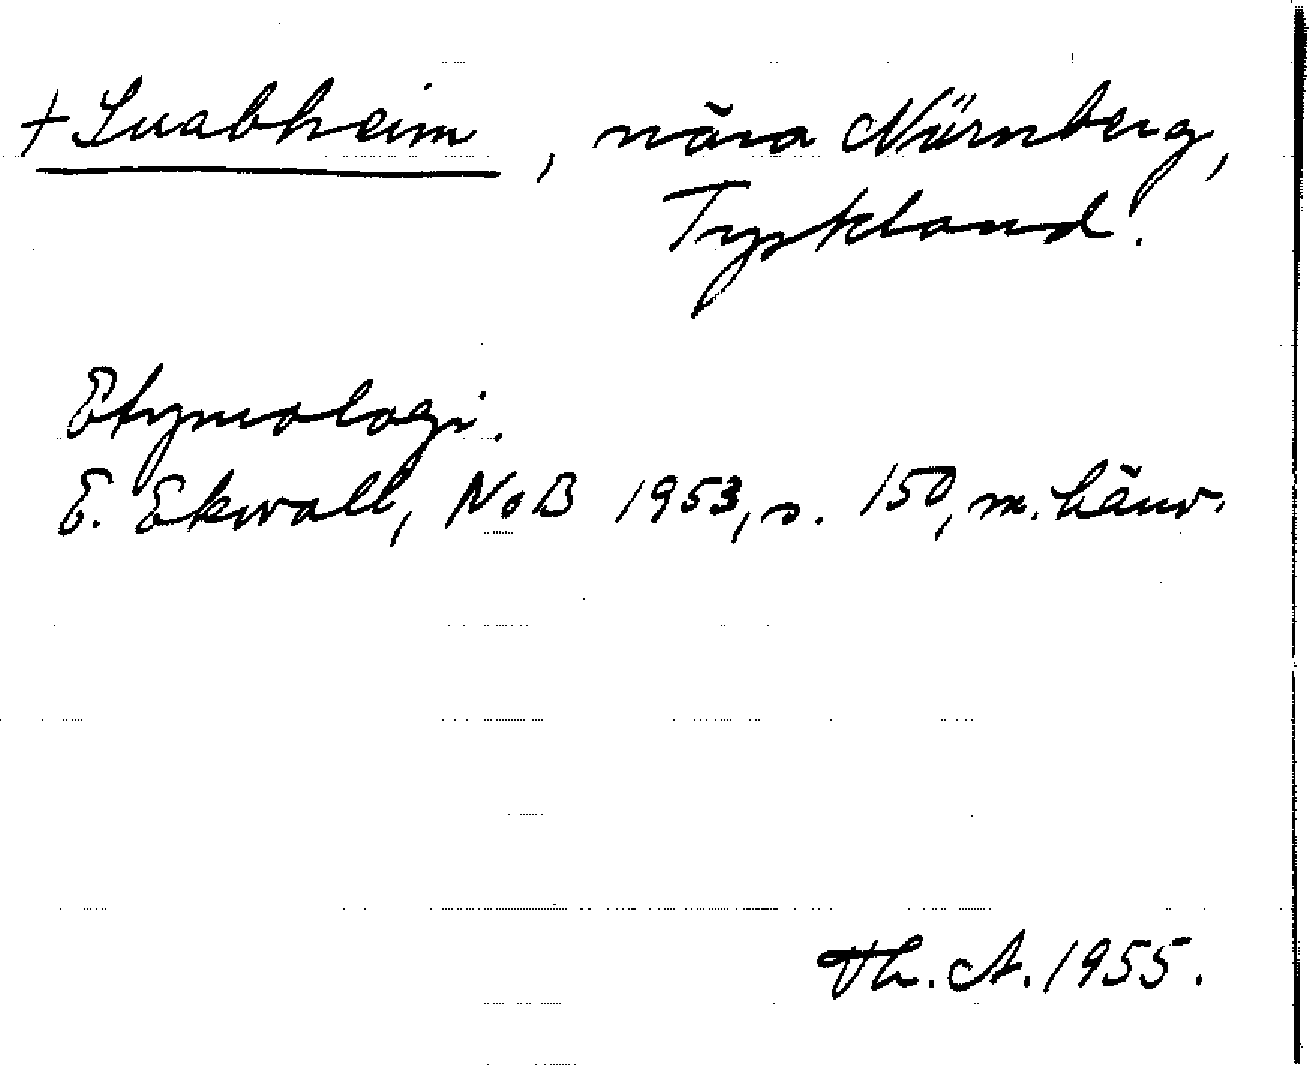 + Suabheim, nära Nürnberg,
Tyskland.
Etymologi.
E. Ekwall, NoB 1953, s. 150, m. hänv.
Th. A. 1955.